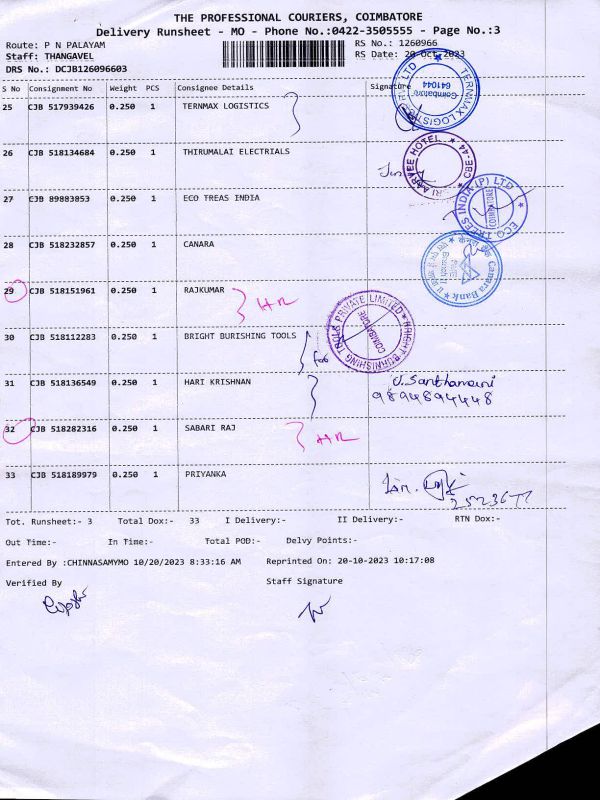 THE PROFESSIONAL COURIERS, COIMBATORE
Delivery Runsheet - MO - Phone No.:0422-3505555 - Page No.:3
Route: P N PALAYAM RS No.: 1260966
Staff: THANGAVEL RS Date: 20-Oct-2023
DRS No.: DCJB126096603
S No Consignment No Weight PCS Consignee Details Signature
25 CJB 517939426 0.250 1 TERNMAX LOGISTICS
26 CJB 518134684 0.250 1 THIRUMALAI ELECTRIALS
27 CJB 89883853 0.250 1 ECO TREAS INDIA
28 CJB 518232857 0.250 1 CANARA
29 CJB 518151961 0.250 1 RAJKUMAR HR
30 CJB 518112283 0.250 1 BRIGHT BURISHING TOOLS
31 CJB 518136549 0.250 1 HARI KRISHNAN J. Santhamani
9894894448
32 CJB 518282316 0.250 1 SABARI RAJ HR
33 CJB 518189979 0.250 1 PRIYANKA
TERNMAX LOGISTICS PVT LTD
Coimbatore
641044
SRI AARVEE HOTEL CBE-44
ECO TREES INDIA (P) LTD
COIMBATORE
Canara Bank
BRIGHT BURNISHING TOOLS PRIVATE LIMITED
COIMBATORE
Tot. Runsheet:- 3 Total Dox:- 33 I Delivery:- II Delivery:- RTN Dox:-
Out Time:- In Time:- Total POD:- Delvy Points:-
Entered By :CHINNASAMYMO 10/20/2023 8:33:16 AM Reprinted On: 20-10-2023 10:17:08
Verified By Staff Signature